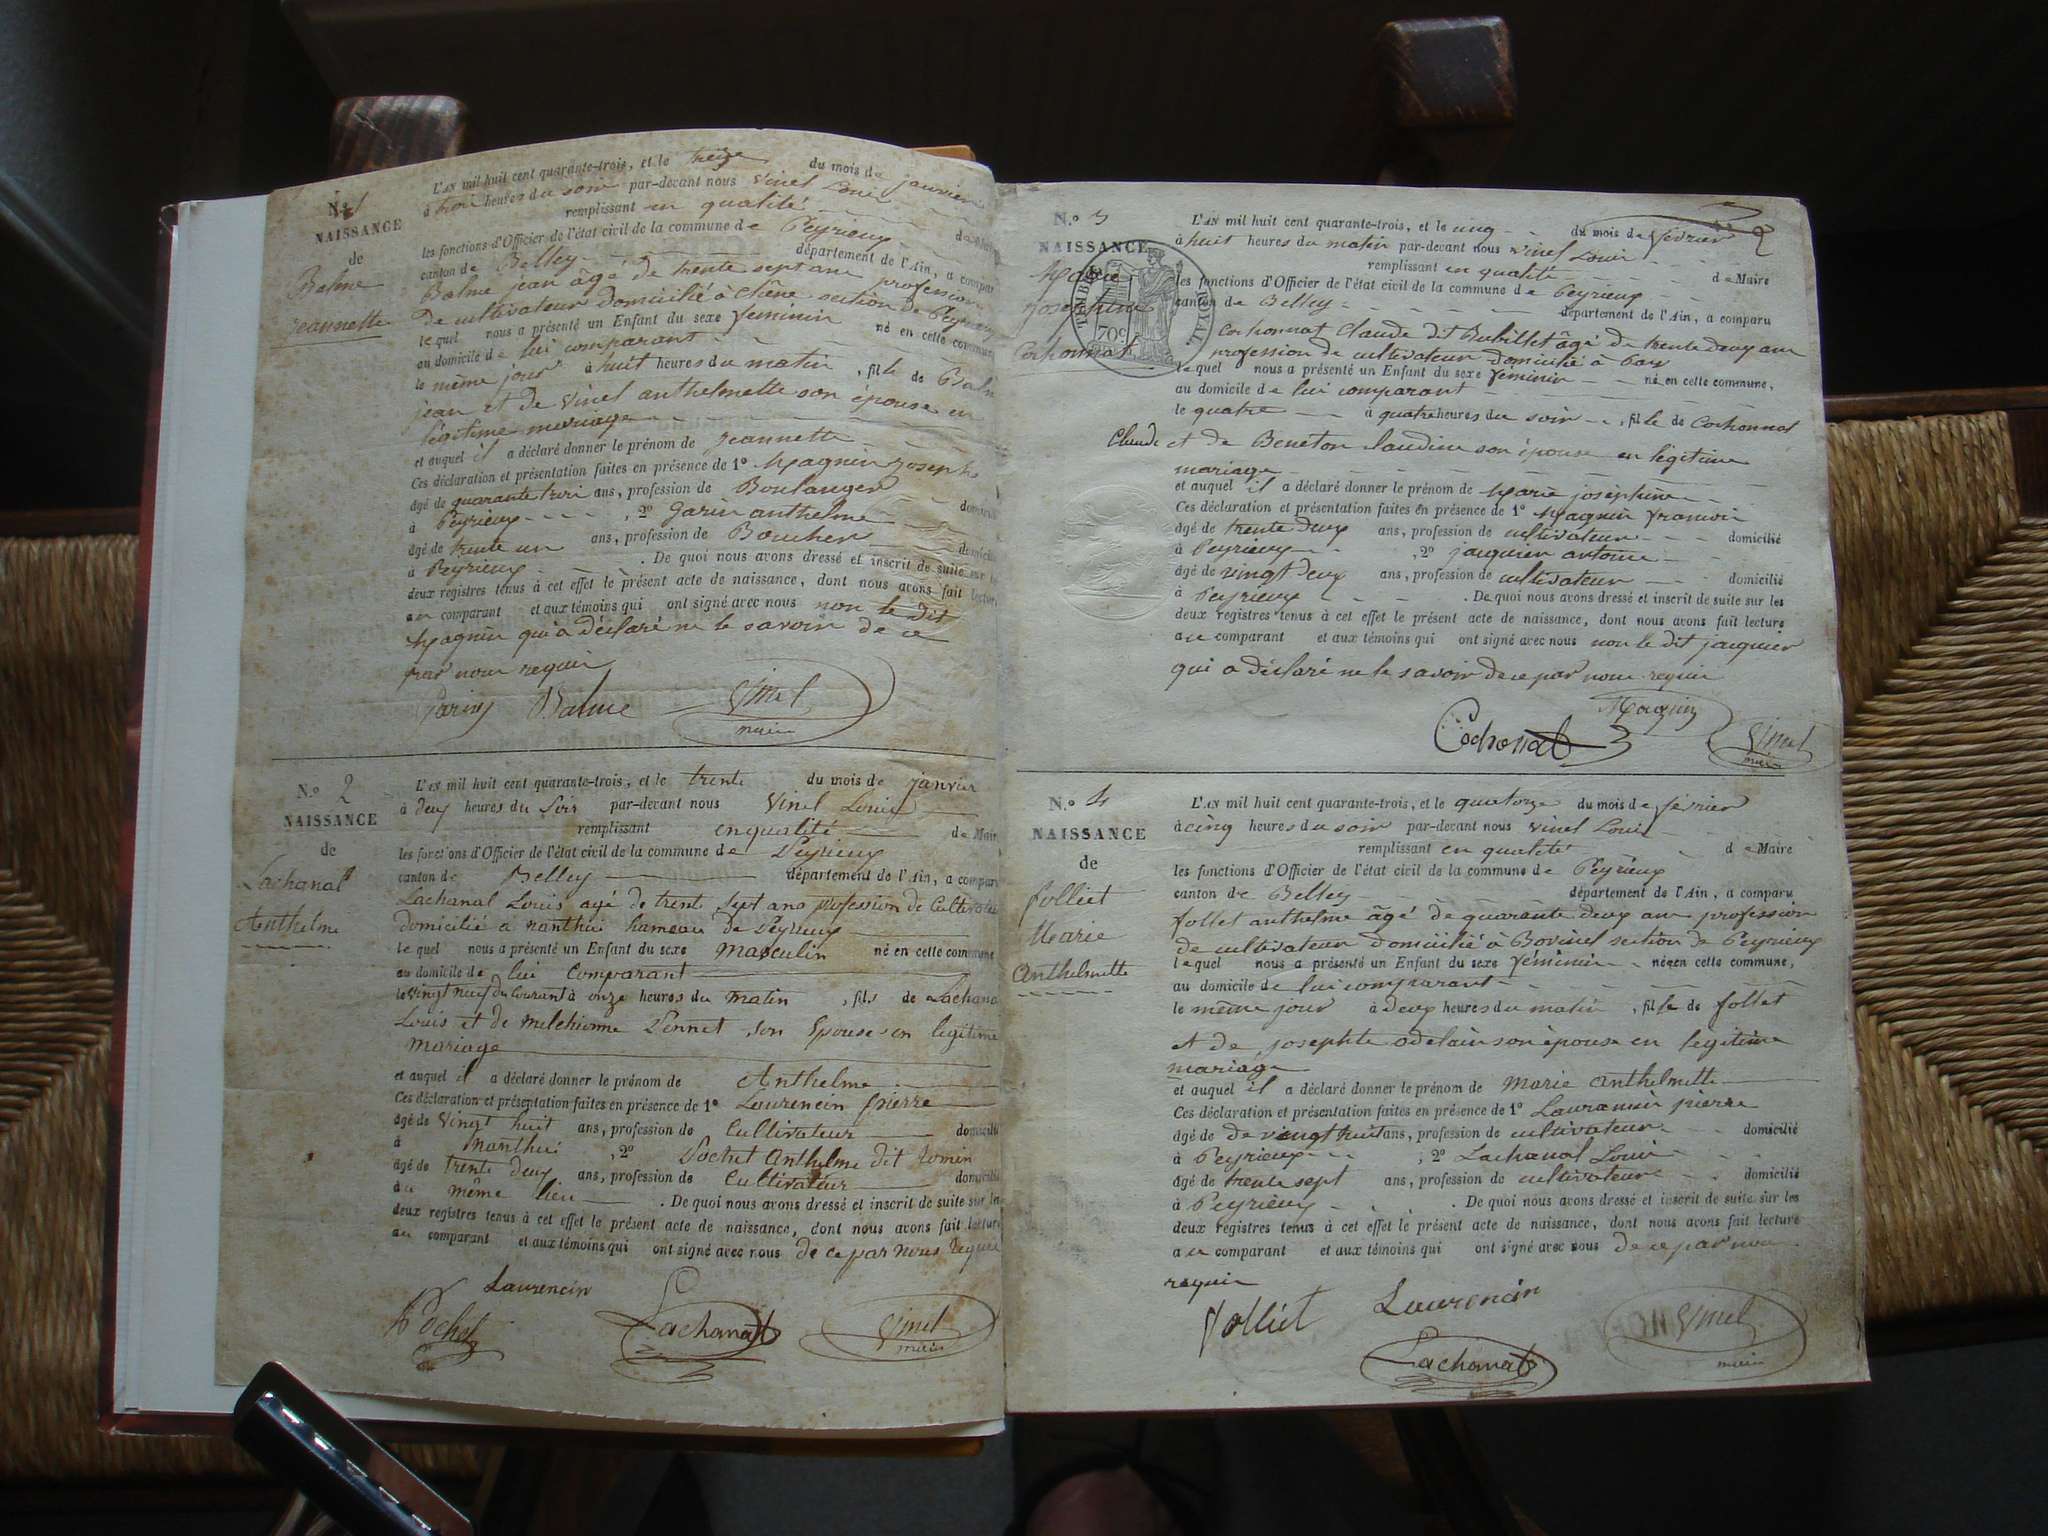 N.º 1
NAISSANCE
de
Balme
Jeannette
L'AN mil huit cent quarante-trois, et le treize du mois de janvier
à trois heures du soir par-devant nous Vinel Louis
remplissant en qualité
les fonctions d'Officier de l'état civil de la commune de Peyrieux
canton de Belley département de l'Ain, a comparu
Balme jean âgé de trente sept ans profession
de cultivateur domicilié à Chêne section de Peyrieux
le quel nous a présenté un Enfant du sexe féminin né en cette commune
au domicile de lui comparant
le même jour à huit heures du matin, fille de Balme
jean et de Vinel anthelmette son épouse en
légitime mariage
et auquel il a déclaré donner le prénom de Jeannette
Ces déclaration et présentation faites en présence de 1º Magnin Joseph
âgé de quarante trois ans, profession de Boulanger
à Peyrieux, 2º Garin anthelme
âgé de trente un ans, profession de Boucher
à Peyrieux. De quoi nous avons dressé et inscrit de suite sur les
deux registres tenus à cet effet le présent acte de naissance, dont nous avons fait lecture
au comparant et aux témoins qui ont signé avec nous non le dit
Magnin qui a déclaré ne le savoir de ce
par nous requis
Garin Balme Vinel
maire
N.º 2
NAISSANCE
de
Lachanal
Anthelme
L'AN mil huit cent quarante-trois, et le trente du mois de janvier
à deux heures du Soir par-devant nous Vinel Louis
remplissant en qualité de Maire
les fonctions d'Officier de l'état civil de la commune de Peyrieux
canton de Belley département de l'Ain, a comparu
Lachanal Louis agé de trente Sept ans profession de Cultivateur
domicilié a nanthui hameau de Peyrieux
le quel nous a présenté un Enfant du sexe Masculin né en cette commune
au domicile de lui Comparant
le vingt neuf du Courant à onze heures du matin, fils de Lachanal
Louis et de melchionne Pennet son Epouse en legitime
mariage
et auquel il a déclaré donner le prénom de Anthelme
Ces déclaration et présentation faites en présence de 1º Laurencin pierre
âgé de Vingt huit ans, profession de Cultivateur domicilié
à nanthui, 2º Pochet Anthelme dit Romen
âgé de trente deux ans, profession de Cultivateur domicilié
au même lieu. De quoi nous avons dressé et inscrit de suite sur les
deux registres tenus à cet effet le présent acte de naissance, dont nous avons fait lecture
au comparant et aux témoins qui ont signé avec nous de ce par nous Requis
Laurencin
Pochet Lachanal Vinel
maire
2
N.º 3
NAISSANCE
Marie
Joséphine
Cochonnat
TIMBRE ROYAL
70c
L'AN mil huit cent quarante-trois, et le cinq du mois de février
à huit heures du matin par-devant nous Vinel Louis
remplissant en qualité de Maire
les fonctions d'Officier de l'état civil de la commune de Peyrieux
canton de Belley département de l'Ain, a comparu
Cochonnat Claude dit Rubillet âgé de trente deux ans
profession de cultivateur domicilié à
le quel nous a présenté un Enfant du sexe féminin né en cette commune,
au domicile de lui comparant
le quatre à quatre heures du soir, fille de Cochonnat
Claude et de Beneton Claudine son épouse en légitime
mariage
et auquel il a déclaré donner le prénom de Marie joséphine
Ces déclaration et présentation faites en présence de 1º Magnin françois
âgé de trente deux ans, profession de cultivateur domicilié
à Peyrieux, 2º jacquier antoine
âgé de vingt deux ans, profession de cultivateur domicilié
à Peyrieux. De quoi nous avons dressé et inscrit de suite sur les
deux registres tenus à cet effet le présent acte de naissance, dont nous avons fait lecture
au comparant et aux témoins qui ont signé avec nous non le dit jacquier
qui a déclaré ne le savoir de ce par nous requis
Magnin
Cochonat Vinel
maire
N.º 4
NAISSANCE
de
folliet
Marie
Anthelmette
L'AN mil huit cent quarante-trois, et le quatorze du mois de février
à cinq heures du soir par-devant nous Vinel Louis
remplissant en qualité de Maire
les fonctions d'Officier de l'état civil de la commune de Peyrieux
canton de Belley département de l'Ain, a comparu
follet anthelme âgé de quarante deux ans profession
de cultivateur domicilié à Bovinel section de Peyrieux
lequel nous a présenté un Enfant du sexe féminin né en cette commune,
au domicile de lui comparant
le même jour à deux heures du matin, fille de follet
et de josephte odelain son épouse en legitime
mariage
et auquel il a déclaré donner le prénom de Marie Anthelmette
Ces déclaration et présentation faites en présence de 1º Laurencin pierre
âgé de de vingt huit ans, profession de cultivateur domicilié
à Peyrieux, 2º Lachanal Louis
âgé de trente sept ans, profession de cultivateur domicilié
à Peyrieux. De quoi nous avons dressé et inscrit de suite sur les
deux registres tenus à cet effet le présent acte de naissance, dont nous avons fait lecture
au comparant et aux témoins qui ont signé avec nous de ce par nous
requis
Folliet Laurencin Vinel
Lachanal maire